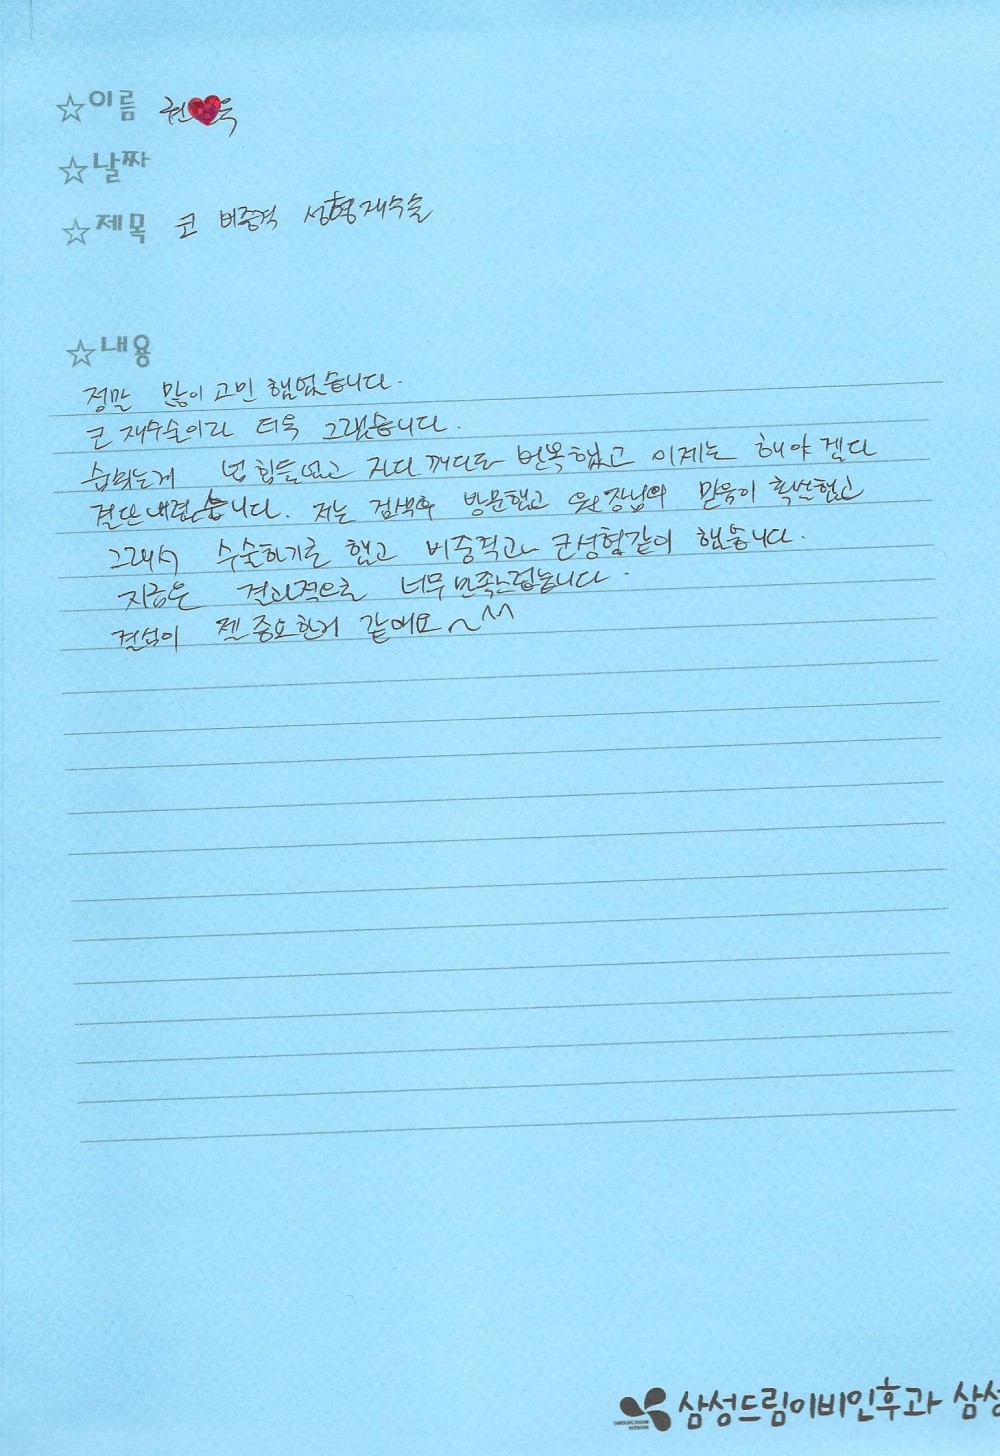 ☆이름 권♥욱
☆날짜
☆제목 코 비중격 성형재수술
☆내용
정말 많이 고민 했었습니다.
코 재수술이라 더욱 그랬습니다.
숨쉬는게 넘 힘들었고 자다 깨다를 반복했고 이제는 해야 겠다
결단내렸습니다. 저는 검색후 방문했고 원장님의 믿음이 확실했고
그래서 수술하기로 했고 비중격과 코성형같이 했습니다.
지금은 결과적으로 너무 만족스럽습니다.
결심이 젤 중요한거 같애요~^^
삼성드림이비인후과 삼성